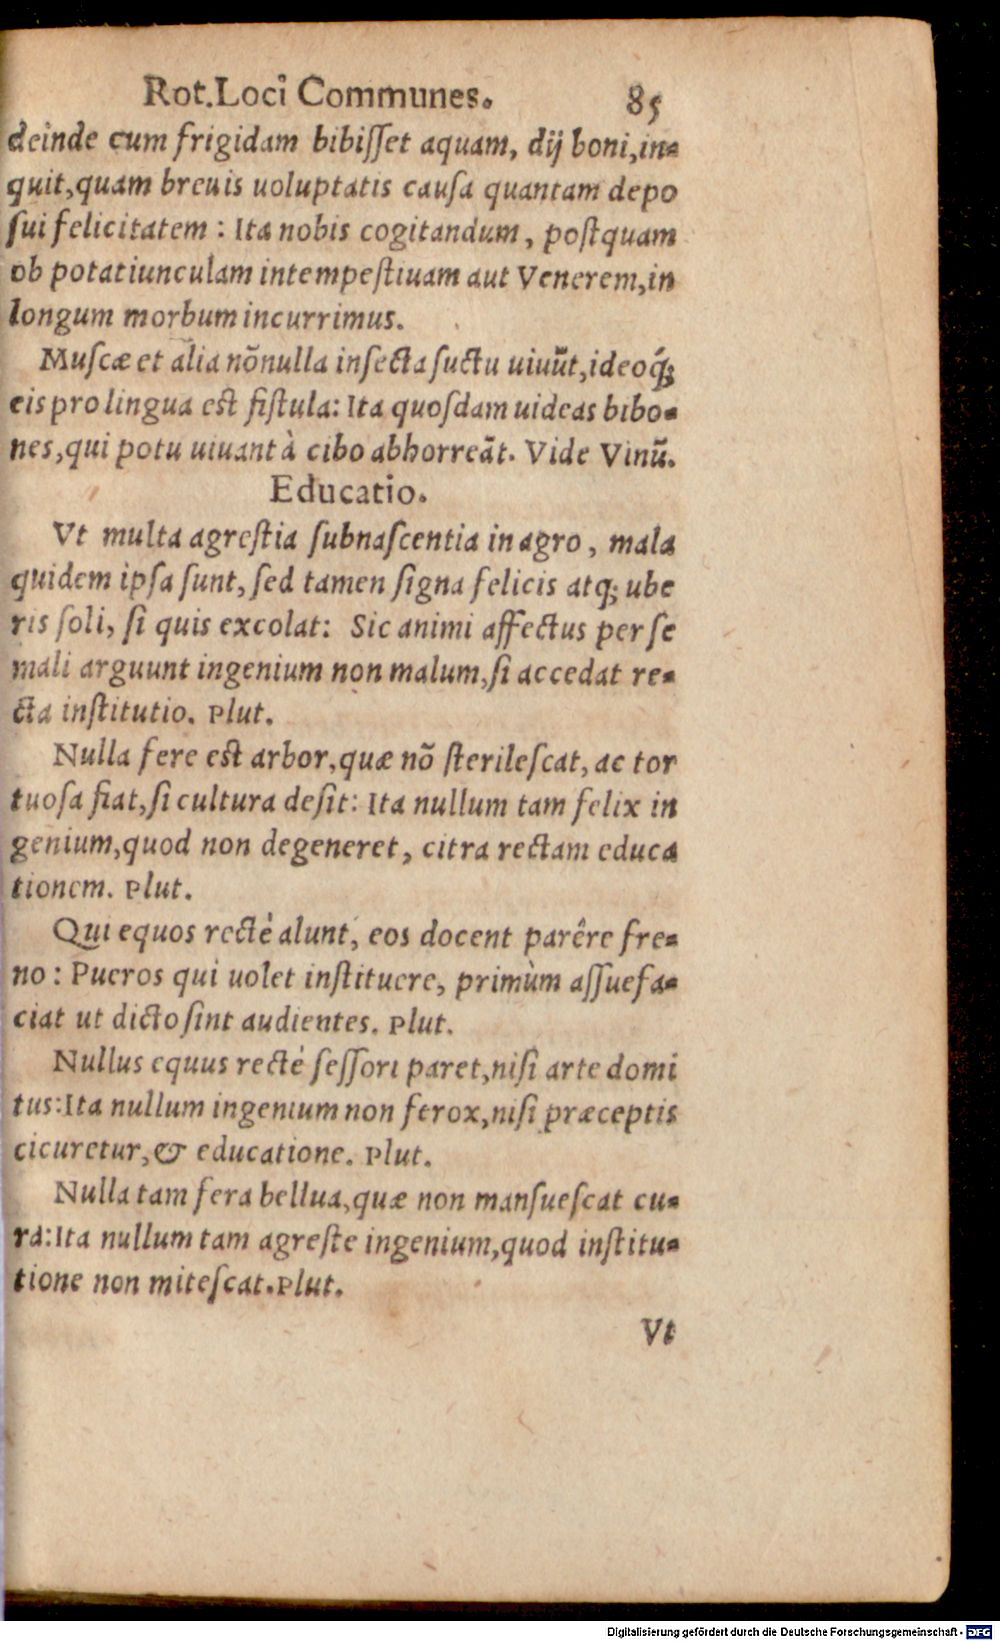 Rot.Loci Communes. 85
deinde cum frigidam bibiſſet aquam, dij boni,in-
quit,quam breuis uoluptatis cauſa quantam depo
ſui felicitatem : Ita nobis cogitandum, poſtquam
ob potatiunculam intempeſtiuam aut Venerem,in
longum morbum incurrimus.
Muſcæ et alia nõnulla inſecta ſuctu uiuũt,ideoq́;
eis pro lingua eſt fiſtula: Ita quoſdam uideas bibo-
nes,qui potu uiuant à cibo abhorreãt. Vide Vinũ.
Educatio.
Vt multa agreſtia ſubnaſcentia in agro, mala
quidem ipſa ſunt, ſed tamen ſigna felicis atq; ube
ris ſoli, ſi quis excolat: Sic animi affectus per ſe
mali arguunt ingenium non malum,ſi accedat re-
cta inſtitutio. Plut.
Nulla fere eſt arbor,quæ nõ ſterileſcat, ac tor
tuoſa fiat,ſi cultura deſit: Ita nullum tam felix in
genium,quod non degeneret, citra rectam educa
tionem. Plut.
Qui equos recté alunt, eos docent parêre fre-
no : Pueros qui uolet inſtituere, primùm aſſuefa-
ciat ut dicto ſint audientes. Plut.
Nullus equus recté ſeſſori paret,niſi arte domi
tus:Ita nullum ingenium non ferox,niſi præceptis
cicuretur,& educatione. Plut.
Nulla tam fera bellua,quæ non manſueſcat cu-
ra:Ita nullum tam agreſte ingenium,quod inſtitu-
tione non miteſcat.Plut.
Vt
Digitalisierung gefördert durch die Deutsche Forschungsgemeinschaft - DFG